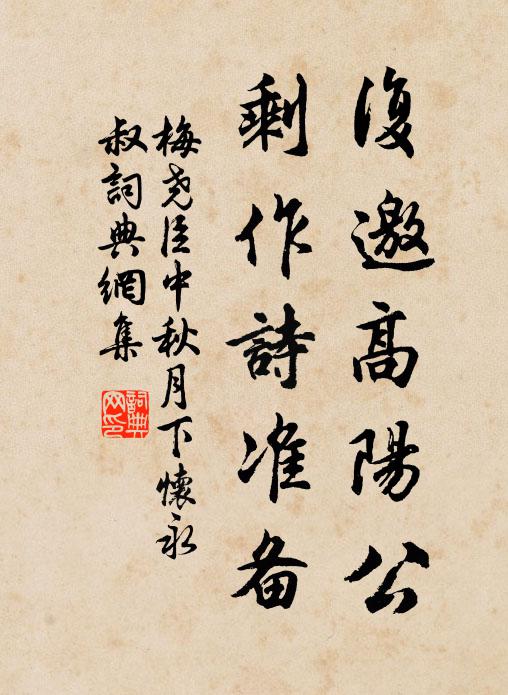 復邀高陽公
剩作詩准备
梅堯臣中秋月下懷永
叔詞典網集
詞典网印